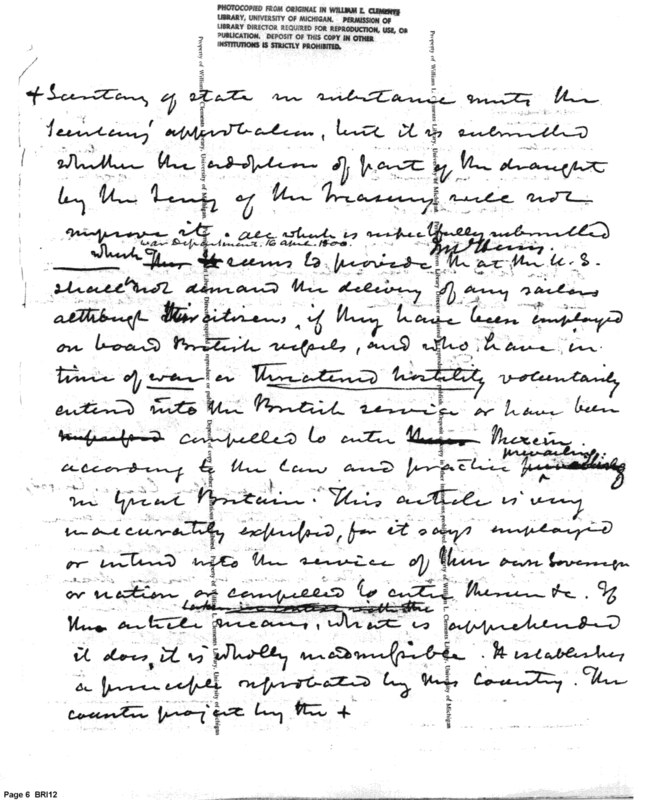 PHOTOCOPIED FROM ORIGINAL IN WILLIAM L. CLEMENTS
LIBRARY, UNIVERSITY OF MICHIGAN. PERMISSION OF
LIBRARY DIRECTOR REQUIRED FOR REPRODUCTION, USE, OR
PUBLICATION. DEPOSIT OF THIS COPY IN OTHER
INSTITUTIONS IS STRICTLY PROHIBITED.
+ Secretary of state in substance meets the
Secretary's approbation, but it is submitted
whether the adoption of part of the draught
by the Secy of the Treasury will not
improve it. all which is respectfully submitted
War Department. 16 April. 1800. JMcHenry.
which This It seems to provide that the U.S.
shall not demand the delivery of any sailors
although their citizens, if they have been employed
on board British vessels, and who have in
time of war or threatened hostility voluntarily
entered into the British service or have been
compelled to enter therein
according to the law and practice prevailing
in Great Britain. This article is very
inaccurately expressed, for it says employed
or entered into the service of their own Sovereign
or nation or compelled to enter therein &c. If
the article means, what is apprehended
it does, it is wholly inadmissible. It establishes
a principle reprobated by this Country. The
counter project by the +
Property of William L. Clements Library, University of Michigan
Page 6 BRI12